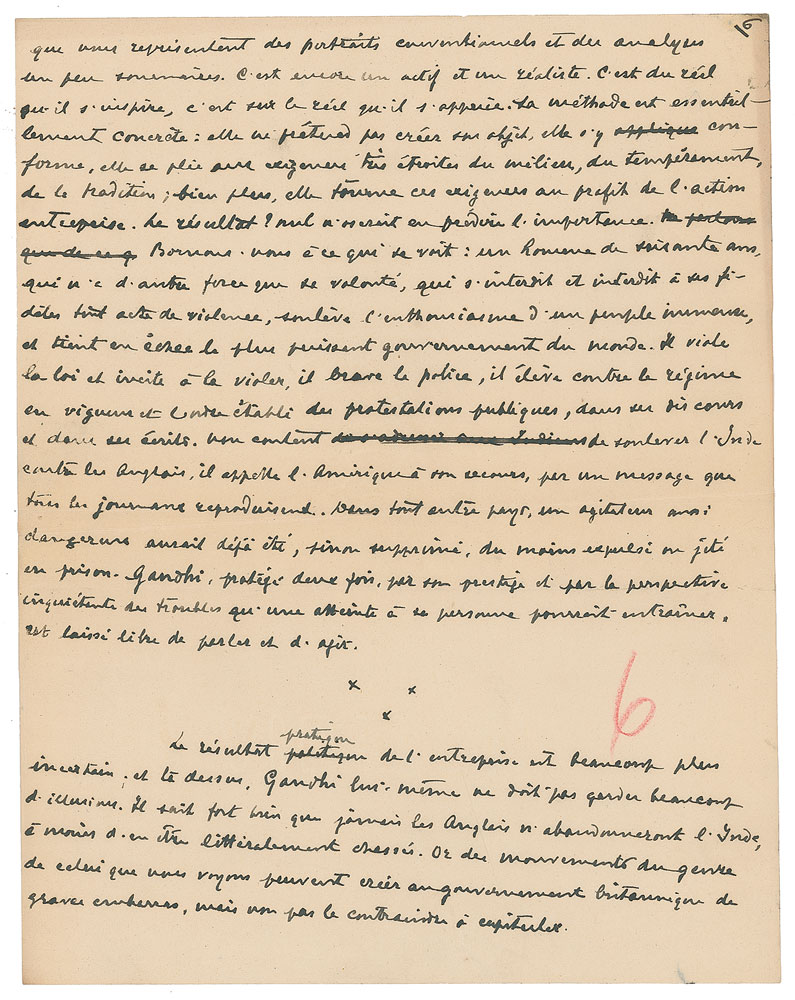 6
que nous représentent des portraits conventionnels et des analyses
un peu sommaires. C'est encore un actif et un réaliste. C'est du réel
qu'il s'inspire, c'est sur le réel qu'il s'appuie. Sa méthode est essentiel-
lement concrète : elle ne prétend pas créer son objet, elle s'y applique con-
forme, elle se plie aux exigences très étroites du milieu, du tempérament,
de la tradition ; bien plus, elle tourne ces exigences au profit de l'action
entreprise. Le résultat ? nul n'oserait en prédire l'importance. Ne parlons
que de ce q Bornons-nous à ce qui se voit : un homme de soixante ans,
qui n'a d'autre force que sa volonté, qui s'interdit et interdit à ses fi-
dèles tout acte de violence, soulève l'enthousiasme d'un peuple immense,
et tient en échec le plus puissant gouvernement du monde. Il viole
la loi et invite à la violer, il brave la police, il élève contre le régime
en vigueur et l'ordre établi des protestations publiques, dans ses discours
et dans ses écrits. Non content aux Indiens de soulever l'Inde
contre les Anglais, il appelle l'Amérique à son secours, par un message que
tous les journaux reproduisent. Dans tout autre pays, un agitateur aussi
dangereux aurait déjà été, sinon supprimé, du moins expulsé ou jeté
en prison. Gandhi, protégé deux fois, par son prestige et par la perspective
inquiétante des troubles qu'une atteinte à sa personne pourrait entraîner,
est laissé libre de parler et d'agir.
x x
x
6
pratique
Le résultat politique de l'entreprise est beaucoup plus
incertain ; et là dessus, Gandhi lui-même ne doit pas garder beaucoup
d'illusions. Il sait fort bien que jamais les Anglais n'abandonneront l'Inde,
à moins d'en être littéralement chassés. Or des mouvements du genre
de celui que nous voyons peuvent créer au gouvernement britannique de
graves embarras, mais non pas le contraindre à capituler.